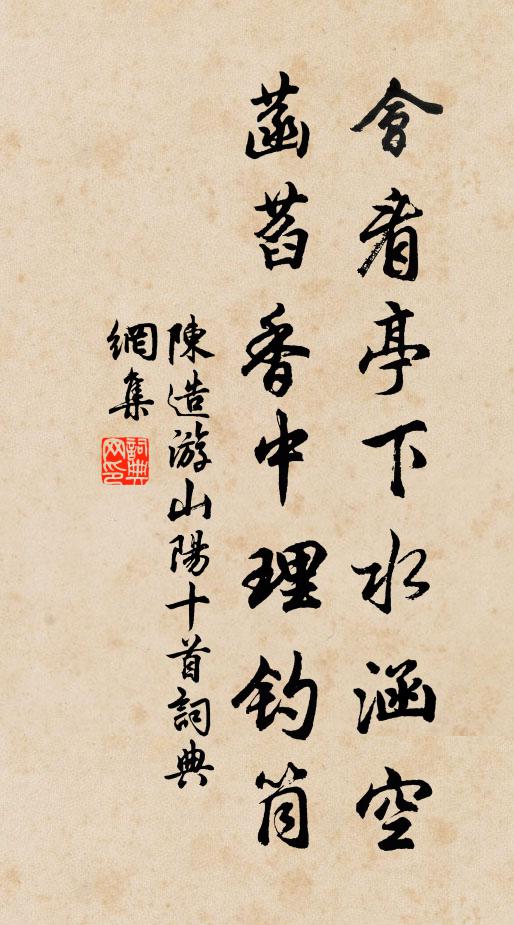 會看亭下水涵空
菡萏香中理釣筒
陳造游山陽十首詞典
網集
詞典
网印